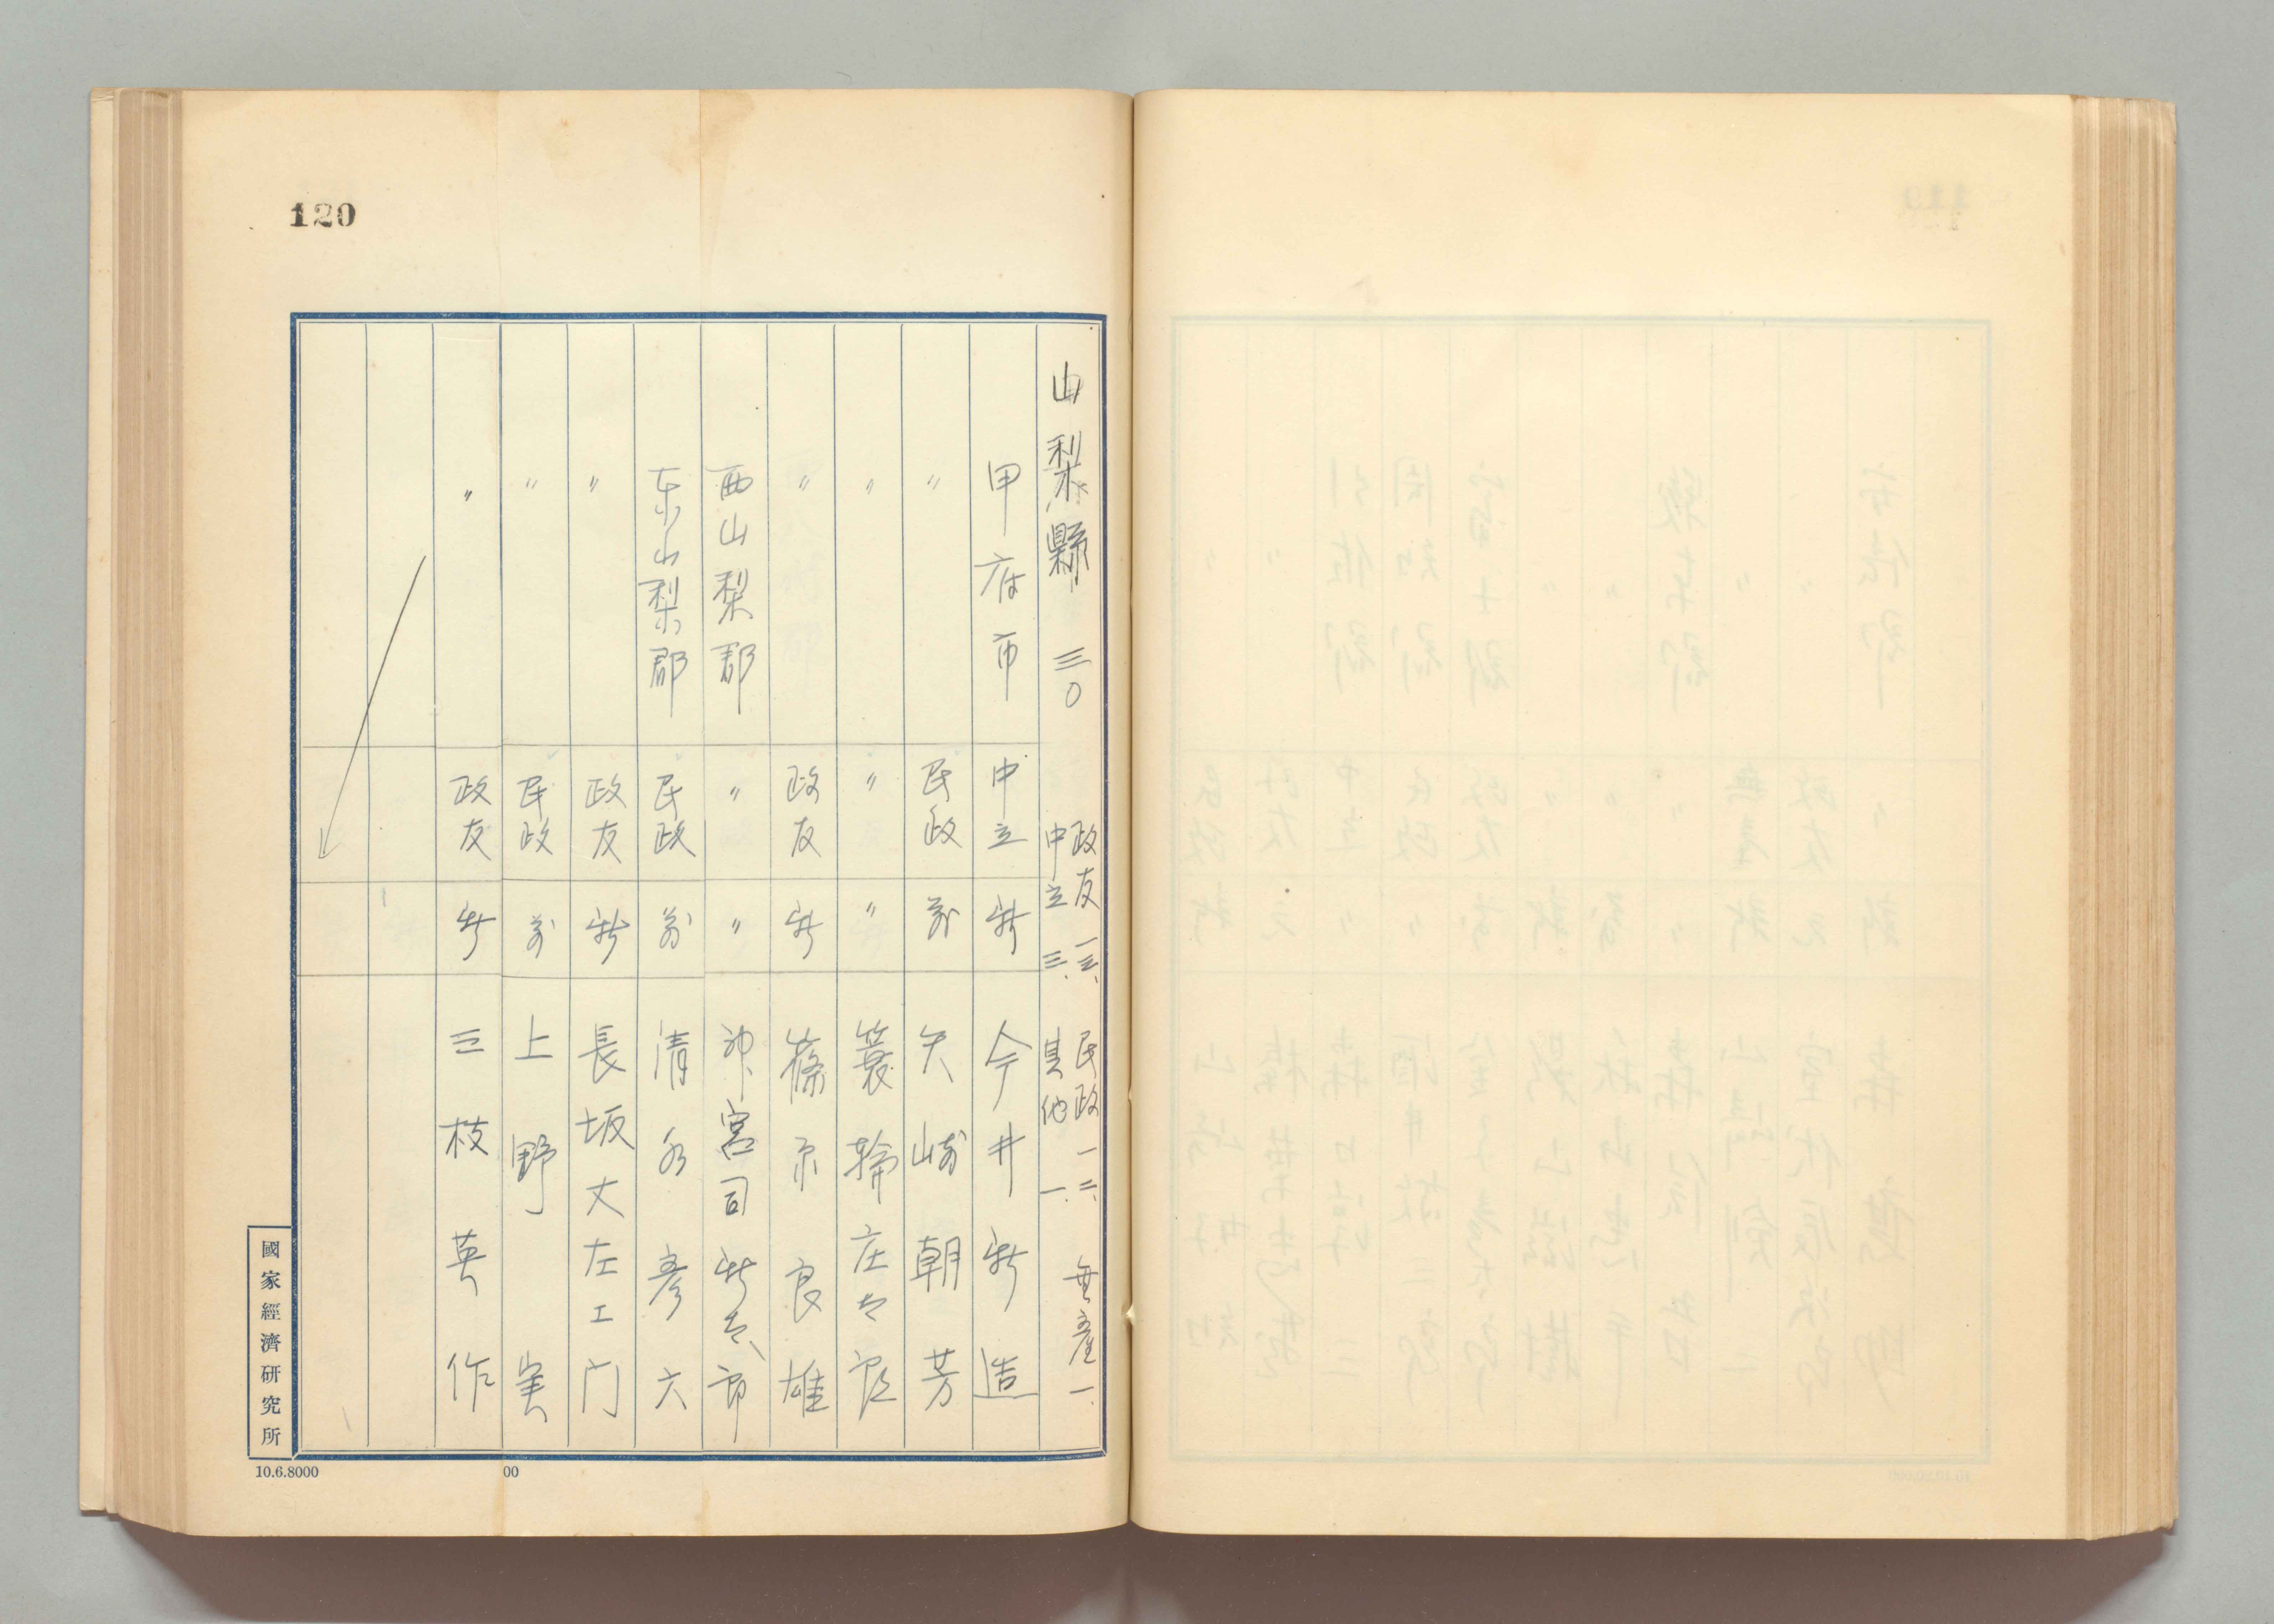 120
山梨縣 三〇 政友 一三、 民政 一二、 無産 一、
中立 三、 其他 一、
甲府市 中立 新 今井新造
〃 民政 前 矢崎朝芳
〃 〃 〃 簑輪庄太郎
〃 政友 新 篠原良雄
西山梨郡 〃 〃 神宮司新太郎
东山梨郡 民政 前 清水彦六
〃 政友 新 長坂丈左エ门
〃 民政 前 上野実
〃 政友 新 三枝英作
國家經濟研究所
10.6.8000 00